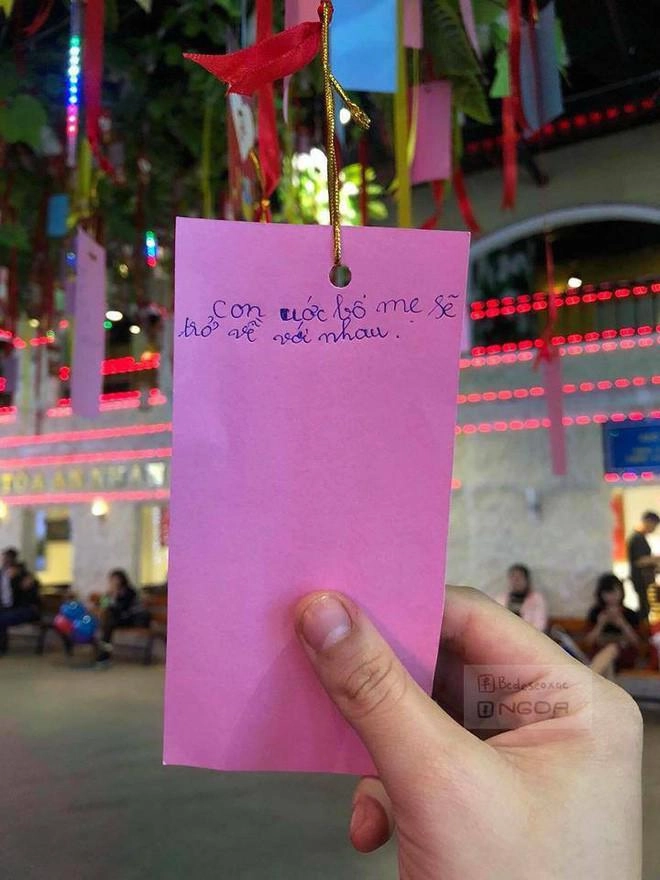 Con ước bố mẹ sẽ
trở về với nhau.
TÒA ÁN NHÂN
Bedeseoxoc
NGOA